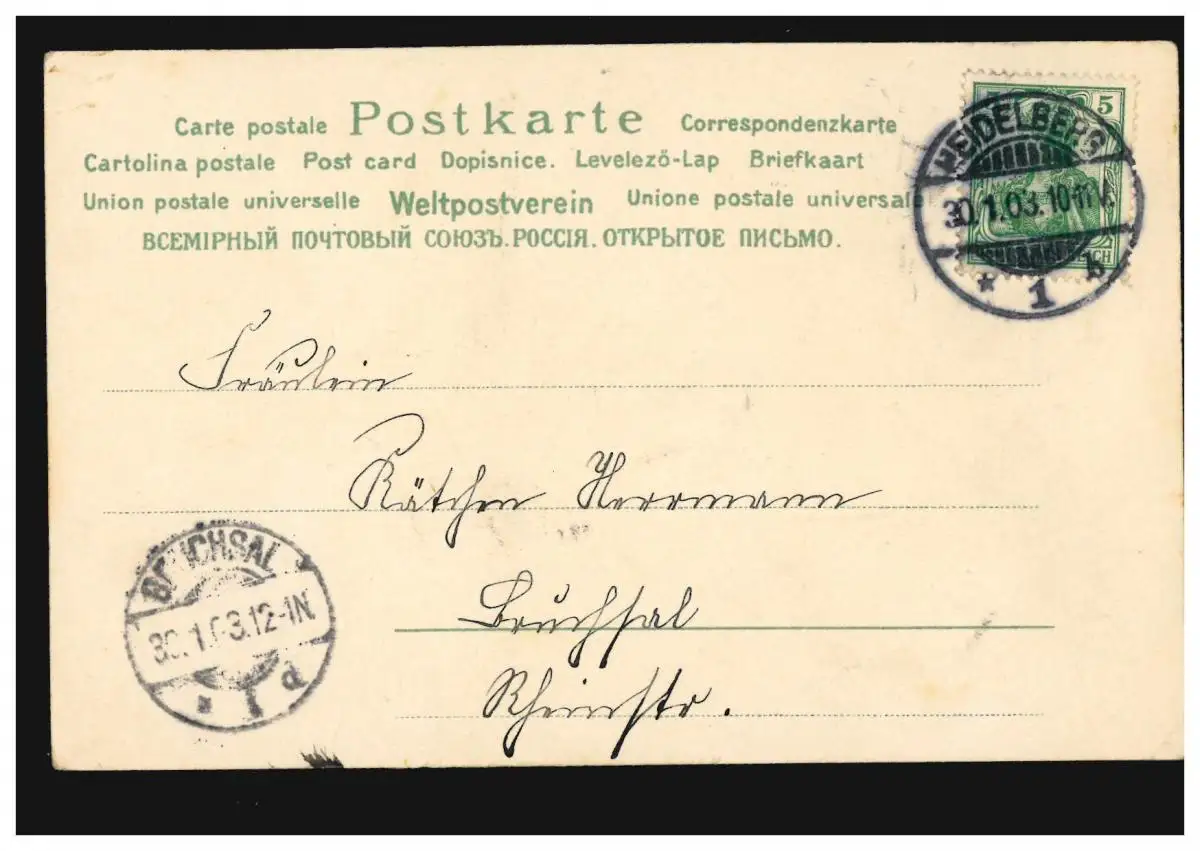 Carte postale Postkarte Correspondenzkarte
Cartolina postale Post card Dopisnice. Levelező-Lap Briefkaart
Union postale universelle Weltpostverein Unione postale universale
ВСЕМІРНЫЙ ПОЧТОВЫЙ СОЮЗЪ. РОССІЯ. ОТКРЫТОЕ ПИСЬМО.
5
HEIDELBERG
30.1.03.10-11V.
* 1 b
Fräulein
Kätchen Herrmann
Bruchsal
Rheinstr.
BRUCHSAL
30.1.03.12-1N.
* 1 d